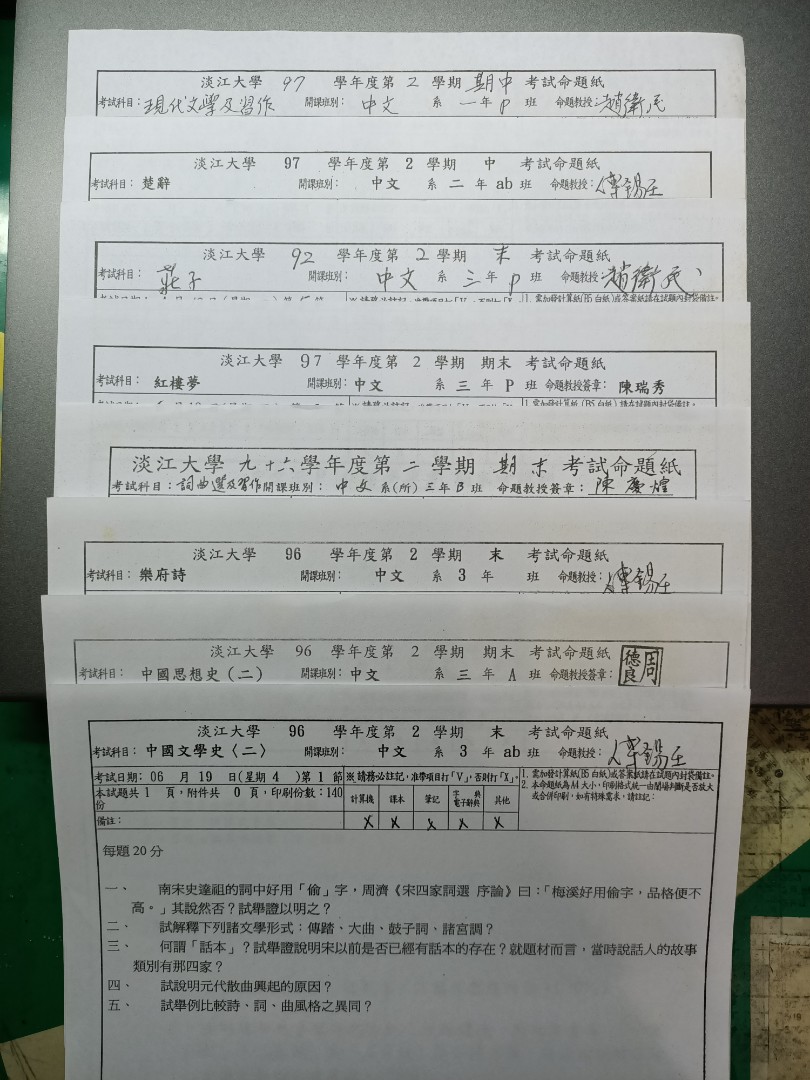 淡江大學 97 學年度第 2 學期 期中 考試命題紙
考試科目：現代文學及習作 開課班別：中文 系 一 年 P 班 命題教授：趙衛民
淡江大學 97 學年度第 2 學期 中 考試命題紙
考試科目：楚辭 開課班別： 中文 系 二 年 ab 班 命題教授：傅錫壬
淡江大學 92 學年度第 2 學期 末 考試命題紙
考試科目：莊子 開課班別： 中文 系 三 年 P 班 命題教授：趙衛民
淡江大學 97 學年度第 2 學期 期末 考試命題紙
考試科目：紅樓夢 開課班別：中文 系 三 年 P 班 命題教授簽章：陳瑞秀
淡江大學九十六學年度第二學期 期末 考試命題紙
考試科目：詞曲選及習作 開課班別：中文系(所)三年B班 命題教授簽章：陳慶煌
淡江大學 96 學年度第 2 學期 末 考試命題紙
考試科目：樂府詩 開課班別： 中文 系 3 年 班 命題教授：傅錫壬
淡江大學 96 學年度第 2 學期 期末 考試命題紙
考試科目：中國思想史（二） 開課班別：中文 系 三 年 A 班 命題教授簽章：周德良
淡江大學 96 學年度第 2 學期 末 考試命題紙
考試科目：中國文學史〈二〉 開課班別： 中文 系 3 年 ab 班 命題教授：傅錫壬
考試日期：06 月 19 日(星期 4 )第 1 節 ※請務必註記，准帶項目打「V」，否則打「X」。 1. 需加發計算紙(B5白紙)或答案紙請在試題內封袋備註。
本試題共 1 頁，附件共 0 頁，印刷份數：140份 計算機 課本 筆記 字典 電子辭典 其他 2. 本命題紙為A4大小，印刷格式統一由闈場判斷是否放大或合併印刷，如有特殊需求，請註記：
備註： X X X X X
每題 20 分
一、 南宋史達祖的詞中好用「偷」字，周濟《宋四家詞選 序論》曰：「梅溪好用偷字，品格便不
高。」其說然否？試舉證以明之？
二、 試解釋下列諸文學形式：傳踏、大曲、鼓子詞、諸宮調？
三、 何謂「話本」？試舉證說明宋以前是否已經有話本的存在？就題材而言，當時說話人的故事
類別有那四家？
四、 試說明元代散曲興起的原因？
五、 試舉例比較詩、詞、曲風格之異同？